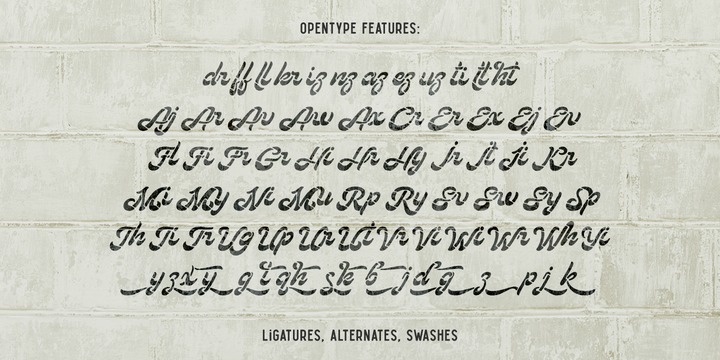 OPENTYPE FEATURES:
dr ff ll br iz nz az ez uz ti tt ht
Aj Ar Av Aw Ax Cr Er Ex Ej Ev
Fl Fi Fr Gr Hi Hr Hy Jr Jt Ji Kr
Mi My Ni Mu Rp Ry Sv Sw Sy Sp
Th Ti Tr Ug Up Ur Ut Vr Vi Wi Wr Wh Yi
y z x y g t q h s k b j d g z p j k
LIGATURES, ALTERNATES, SWASHES